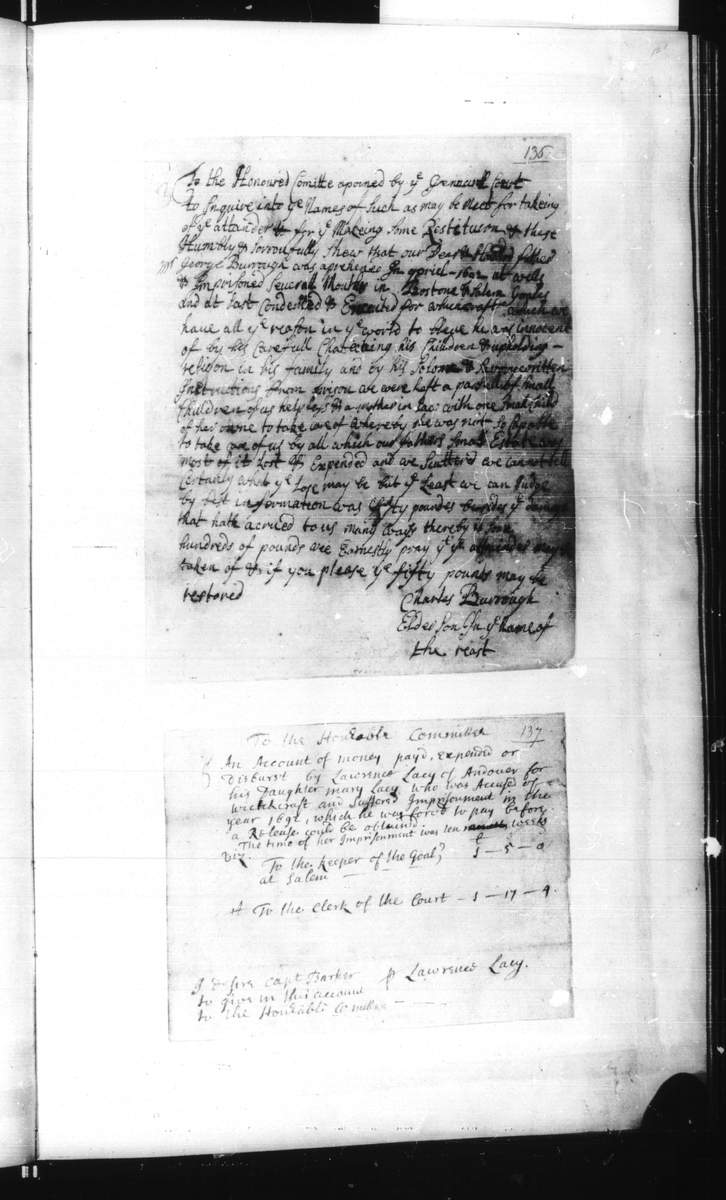 136
To the Honoured Comitte apoined by ye Generall Court
to Inquire into ye Names of such as may be meet for takeing
of ye attander & for ye Makeing Some Restituson & these
Humbly & Sorroufully shew that our Dear & Honered father
Mr George Burrough was aprehended In april - 1692 at wells
& Imprisoned Severall Mouths in Bostone & Salem Goales
and at last Condemed & Excuted for whichcraft which we
have all ye reason in ye world to bleve he was Innocent
of by his Carefull Chatecizing his Children & upholding -
relison in his family and by his Solomn & Savory written
Instructions from prison we were Left a parsell of small
Children of us helpless & a mother in law with one small Child
of her owne to take care of whereby she was not so capable
to take care of us by all which our fathers small Estate was
most of it Lost & Expended and we Scattered we cannot tell
Certanly what ye Lose may be but ye Least we can Judge
by best information was fifty poundes besides ye damage
that hath accrued to us many ways thereby is some
hundreds of pounds wee Earnestly pray yt ye attainder may be
taken of & if you please ye fifty pounds may be
restored
Charles Burrough
Elder Son In ye name of
the reast
To the Honrable Committee 137
An Account of money payd, Expended or
Disburst by Lawrence Lacy of Andover for
his Daughter mary Lacy who was Accused of
witchcraft and Suffered Imprisonment in the
year 1692, which he was forct to pay before
a Release could be obtained
The time of her Imprisonment was ten weeks
Viz.
To the keeper of the Goal
at Salem — 3 — 5 — 0
It To the Clerk of the Court — 1 — 17 — 4.
I desire Capt Barker
to give in this account
to the Honrable Comittee
p Lawrence Lacy.